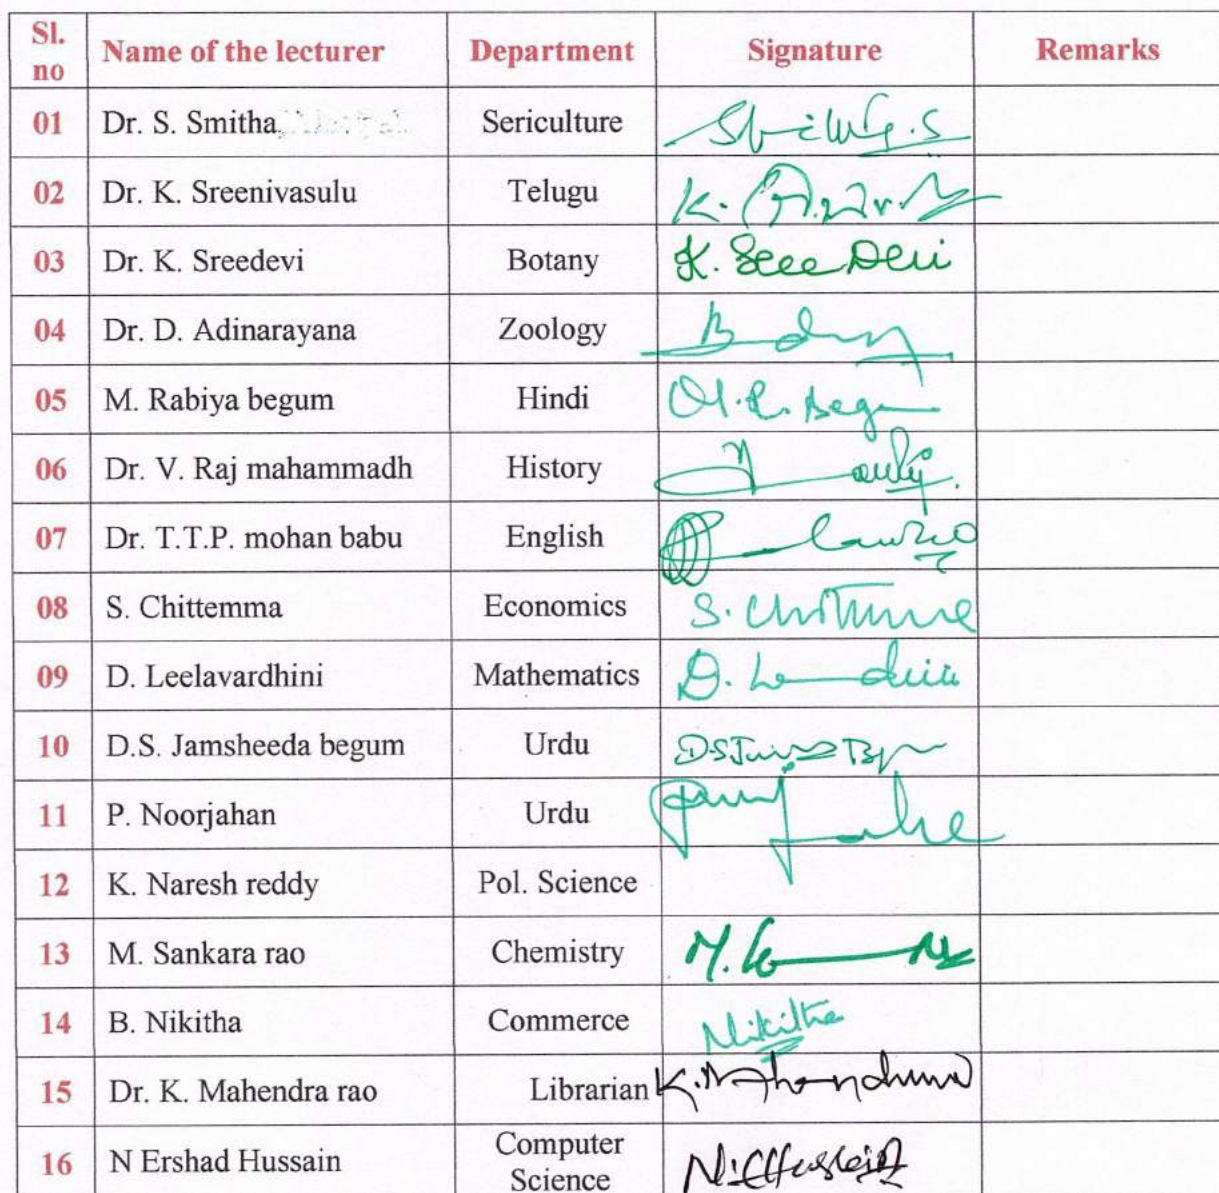 Sl. no Name of the lecturer Department Signature Remarks
01 Dr. S. Smitha Sericulture
02 Dr. K. Sreenivasulu Telugu K.
03 Dr. K. Sreedevi Botany K. Sree Devi
04 Dr. D. Adinarayana Zoology
05 M. Rabiya begum Hindi M. R. Begum
06 Dr. V. Raj mahammadh History
07 Dr. T.T.P. mohan babu English
08 S. Chittemma Economics S. Chittemma
09 D. Leelavardhini Mathematics D.
10 D.S. Jamsheeda begum Urdu
11 P. Noorjahan Urdu
12 K. Naresh reddy Pol. Science
13 M. Sankara rao Chemistry M.
14 B. Nikitha Commerce Nikitha
15 Dr. K. Mahendra rao Librarian
16 N Ershad Hussain Computer Science